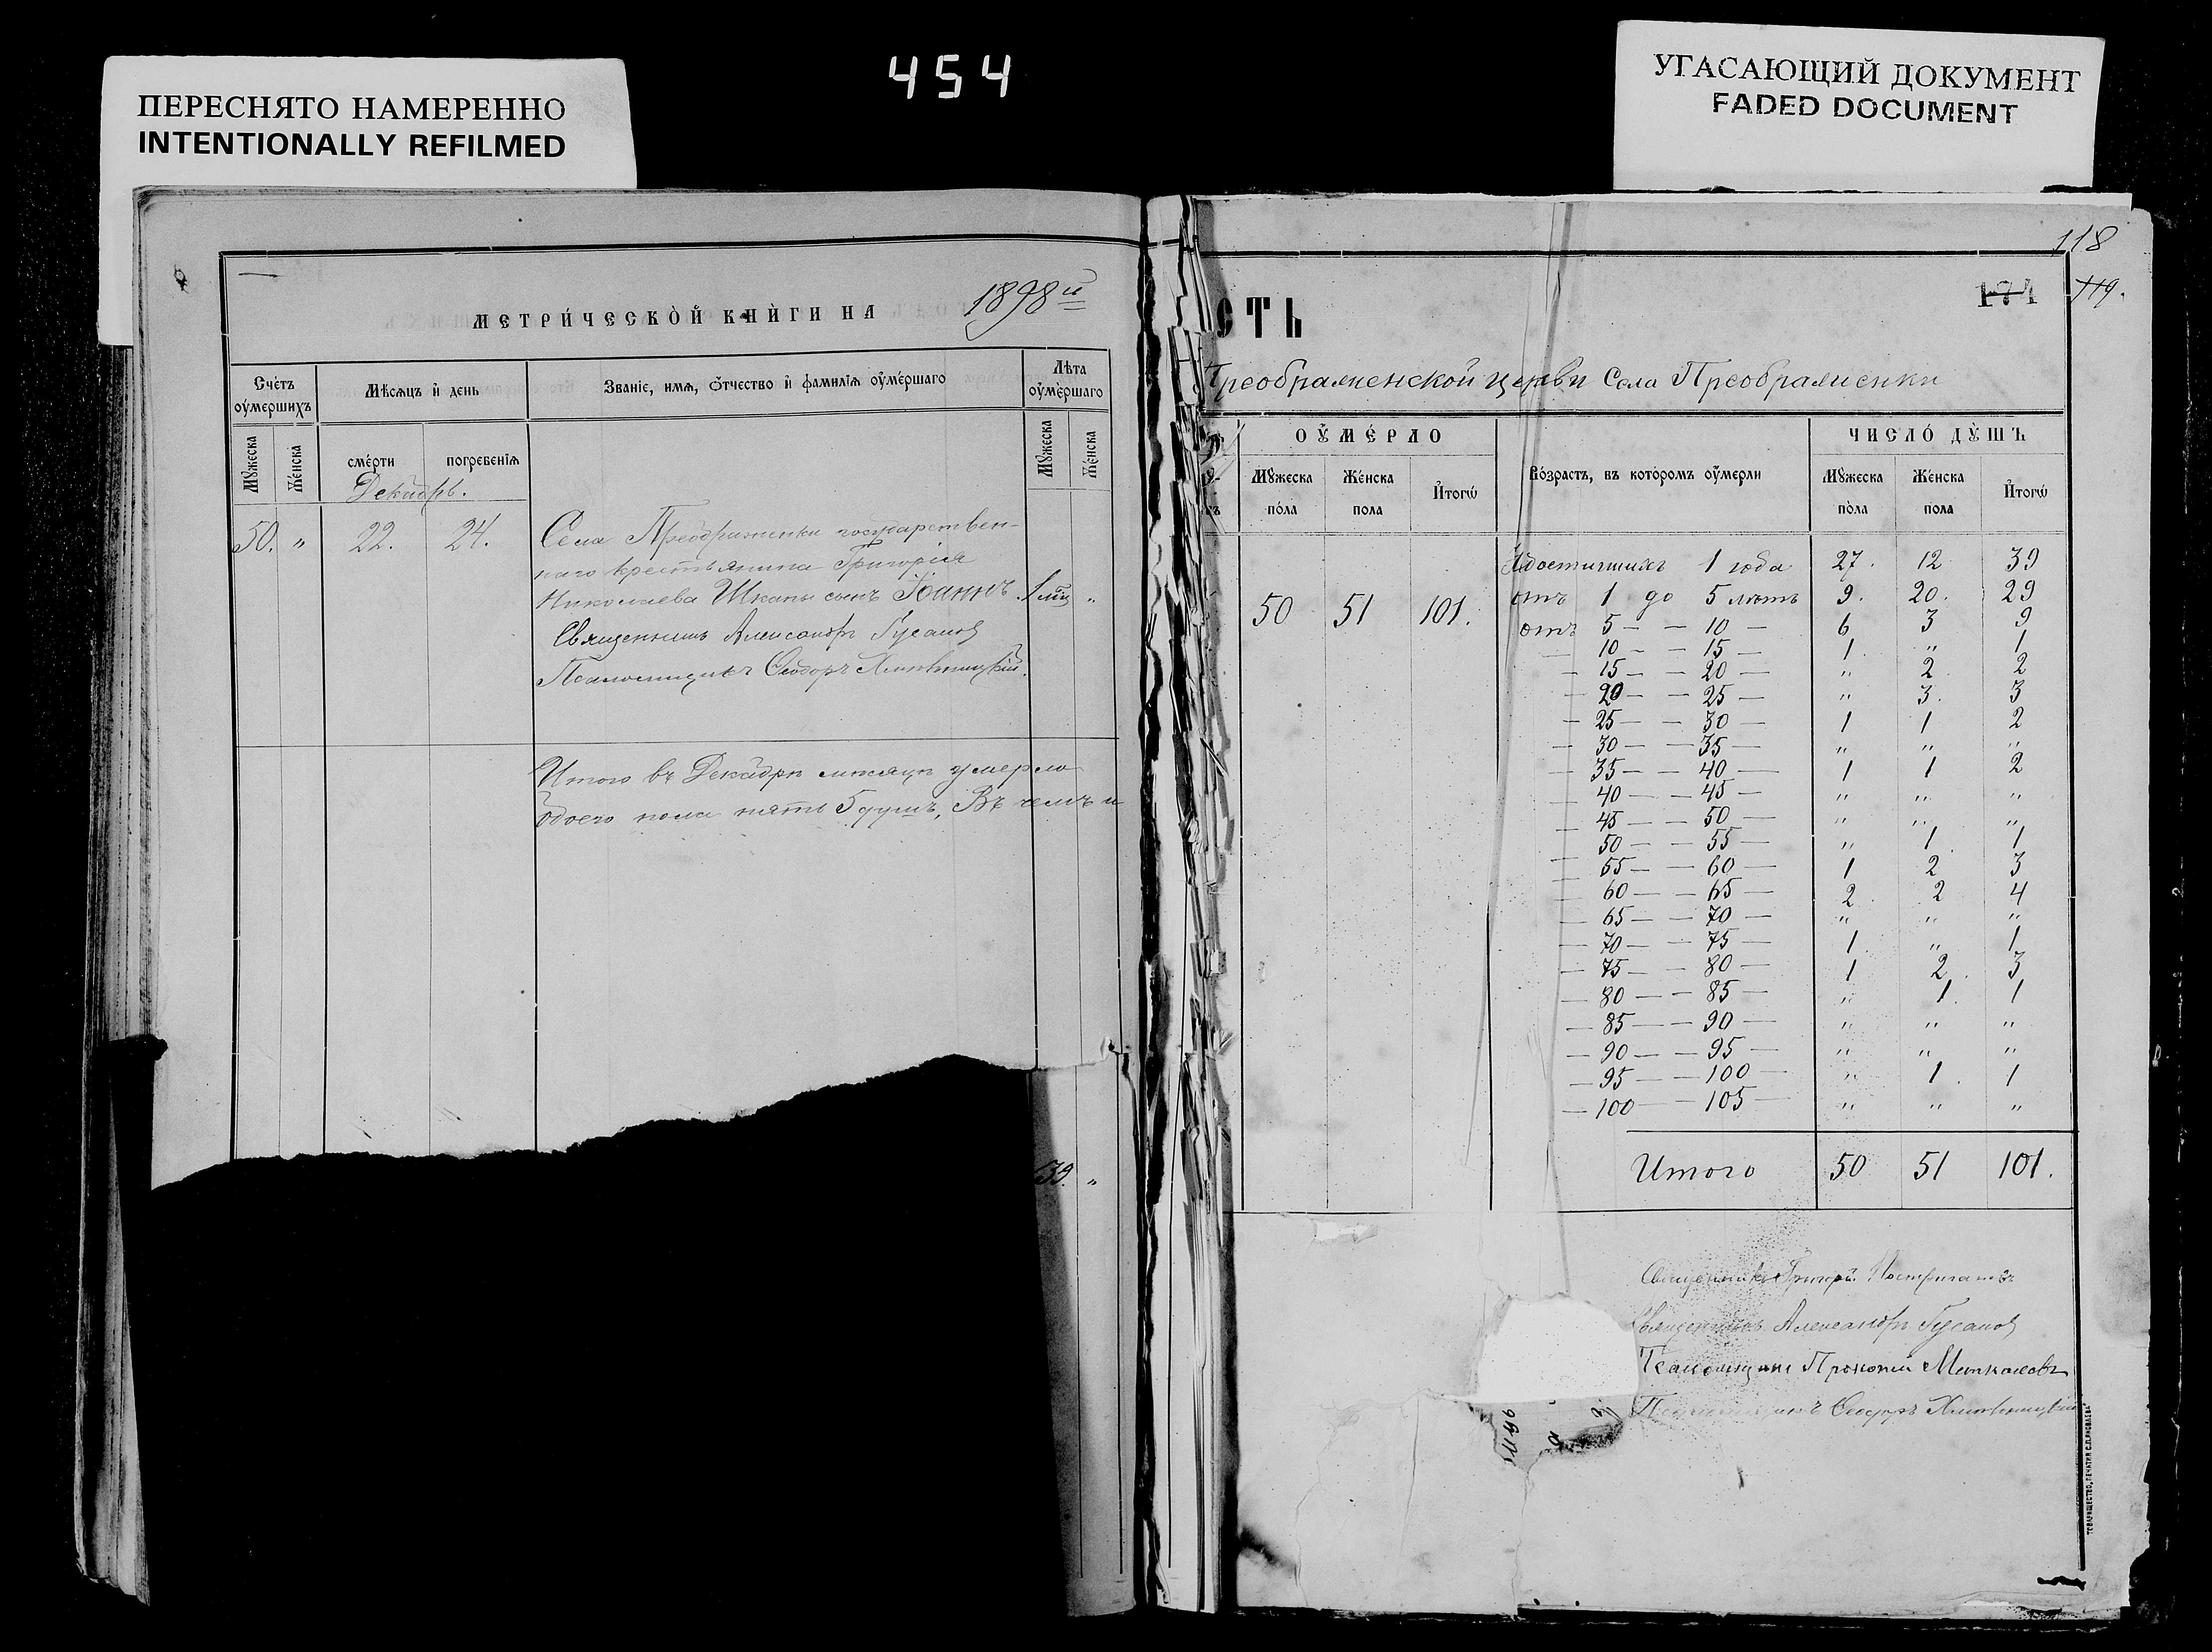 454
ПЕРЕСНЯТО НАМЕРЕННО
INTENTIONALLY REFILMED
УГАСАЮЩИЙ ДОКУМЕНТ
FADED DOCUMENT
МЕТРИ́ЧЕСКО̀Й КНЍГИ НА 1898й
Счётъ оу҆ме́ршихъ
Мѣ́сѧцъ и҆ день
Зва́нїе, и҆мѧ, ѻ҆́тчество и҆ фами́лїѧ оу҆ме́ршаго
Лѣ́та оу҆ме́ршаго
Мꙋ́жеска
Же́нска
сме́рти
погребе́нїѧ
Мꙋ́жеска
Же́нска
Декабрь.
50. " 22. 24. Села Преображенки государствен-
наго крестьянина Григорія
Николаева Шкапы сынъ Іоаннъ. 1 "
Священникъ Александръ Гусаковъ
Псаломщикъ Ѳеодоръ
Итого въ Декабрѣ мѣсяцѣ умерло
обоего пола пять 5 душъ, Въ чемъ и
39. "
118
174 119.
СТЬ
Преображенской церкви Села Преображенки
ОУ҆МЕ́РЛО
Мꙋ́жеска по́ла
Же́нска пола
И҆тогѡ̀
Во́зрастъ, въ кото́ромъ оу҆́мерли
ЧИСЛО́ ДꙊ́ШЪ
Мꙋ́жеска по́ла
Же́нска по́ла
И҆тогѡ̀
50 51 101.
Недостигшихъ 1 года 27. 12 39
отъ 1 до 5 лѣтъ 9. 20. 29
отъ 5 — — 10 — 6 3 9
— 10 — — 15 — 1. " 1
— 15 — — 20 — " 2 2
— 20 — — 25 — " 3. 3
— 25 — — 30 — 1 1 2
— 30 — — 35 — " " "
— 35 — — 40 — 1 1 2
— 40 — — 45 — " " "
— 45 — — 50 — " " "
— 50 — — 55 — " 1. 1
— 55 — — 60 — 1 2 3
— 60 — — 65 — 2. 2 4
— 65 — — 70 — " " "
— 70 — — 75 — 1. " 1
— 75 — — 80 — 1 2. 3
— 80 — — 85 — " 1. 1
— 85 — — 90 — " " "
— 90 — — 95 — " " "
— 95 — — 100 — " 1. 1
— 100 — — 105 — " " "
Итого 50 51 101.
Священникъ Григорій
Священникъ Александръ Гусаковъ
Прокопій
Ѳеодоръ